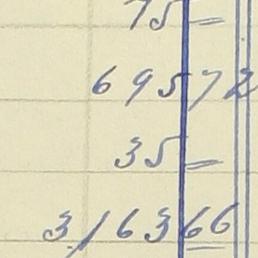 75 =
695 72
35 =
3,163 66